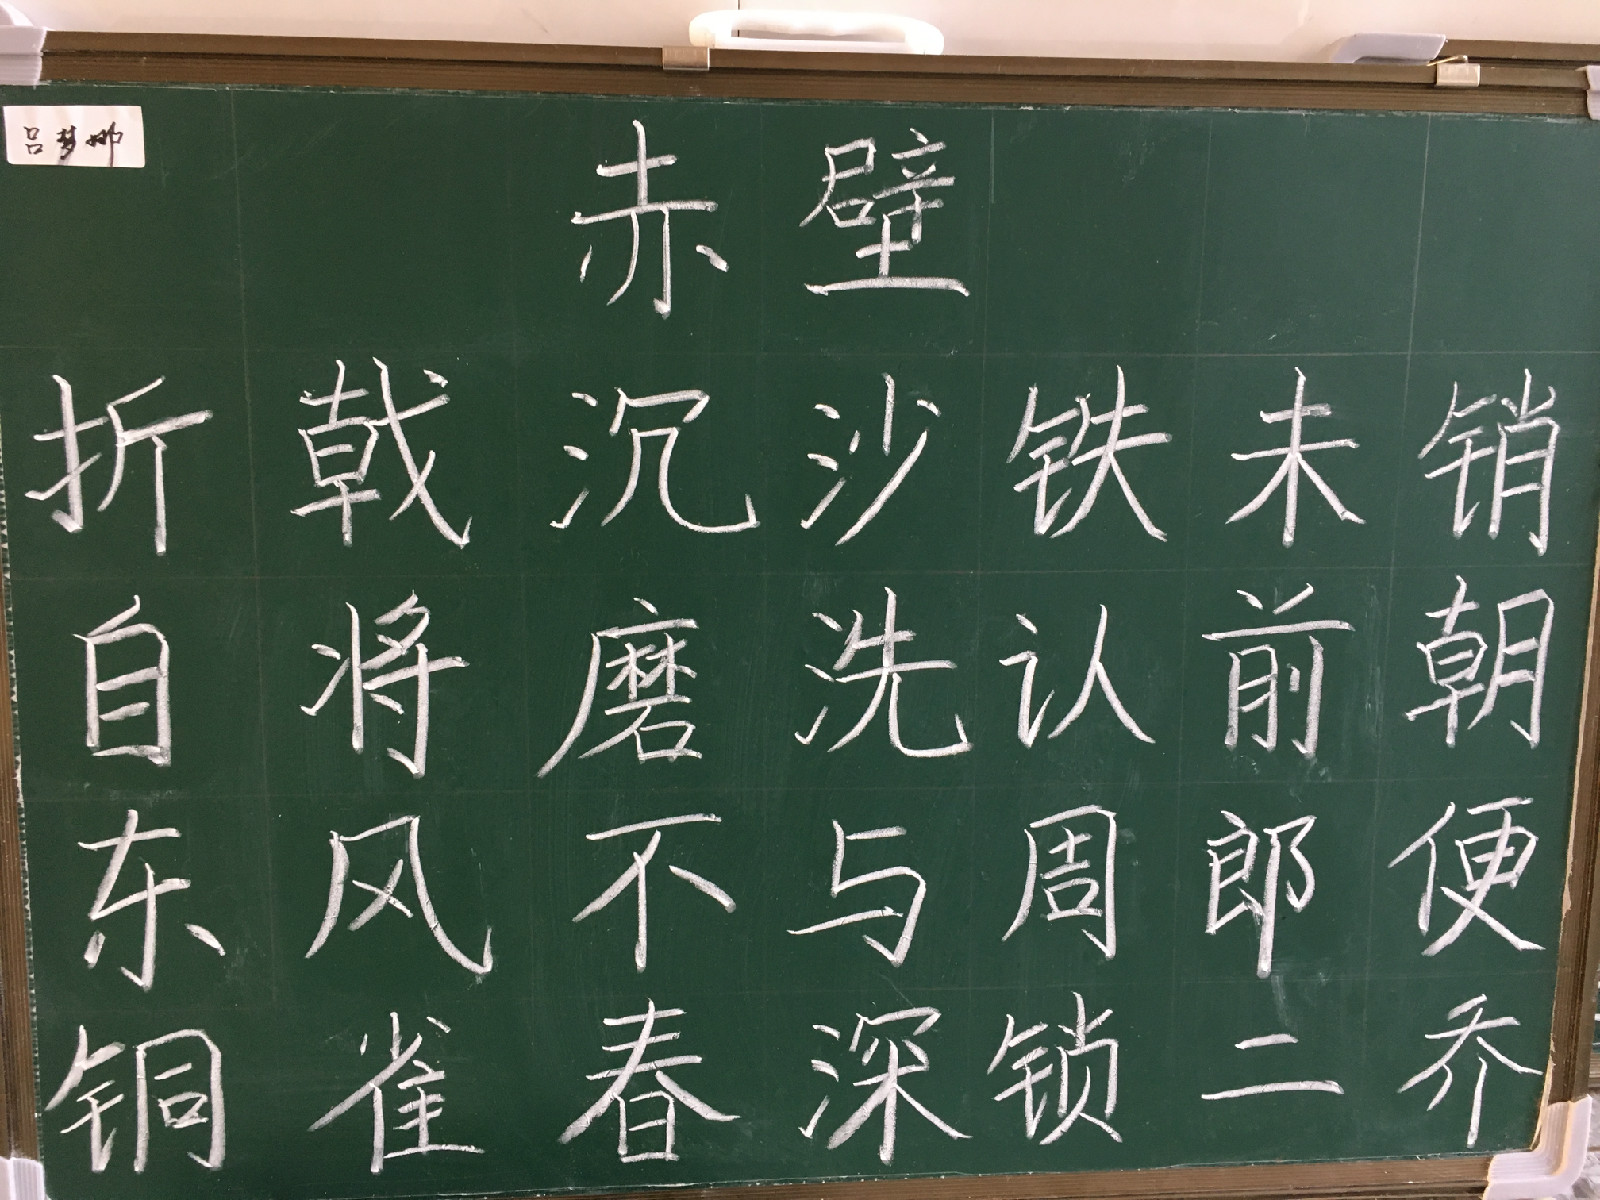 吕梦娜
赤壁
折戟沉沙铁未销
自将磨洗认前朝
东风不与周郎便
铜雀春深锁二乔